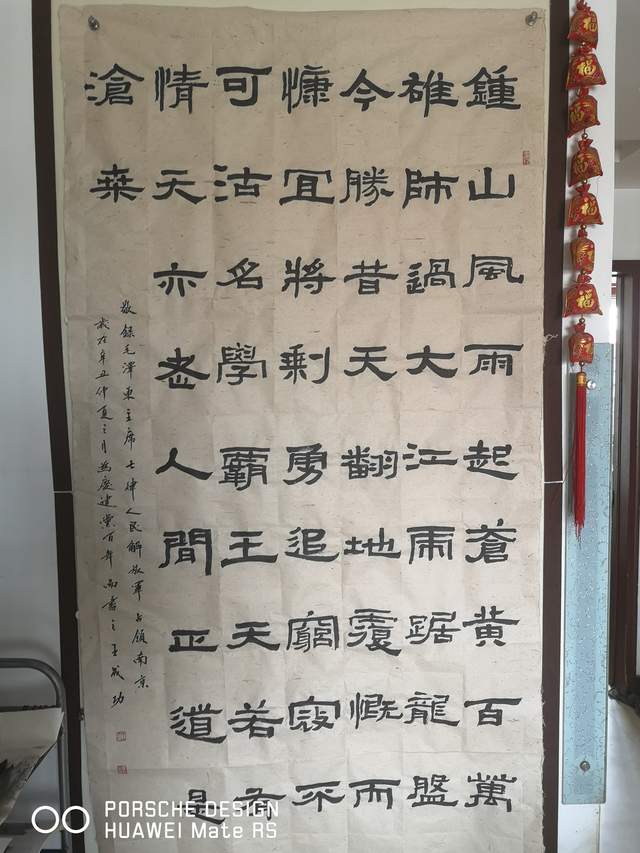 鍾山風雨起蒼黃百萬
雄師過大江虎踞龍盤
今勝昔天翻地覆慨而
慷宜將剩勇追窮寇不
可沽名學霸王天若有
情天亦老人間正道是
滄桒
敬錄毛澤東主席七律人民解放軍占領南京
歲在辛丑仲夏之月為慶建黨百年而書之王成功
福
福
福
福
福
福
福
PORSCHE DESIGN
HUAWEI Mate RS